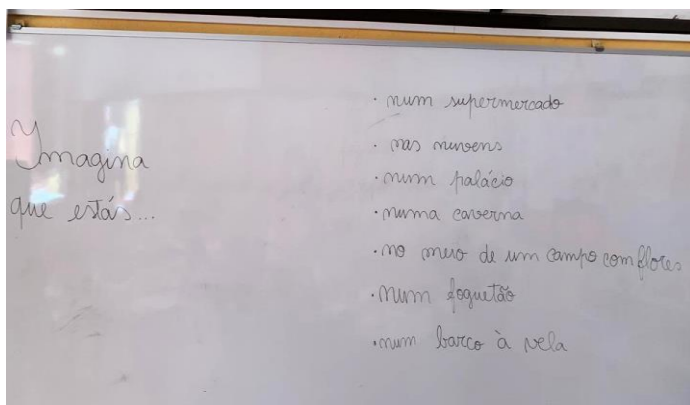 Imagina
que estás...
· num supermercado
· nas nuvens
· num palácio
· numa caverna
· no meio de um campo com flores
· num foguetão
· num barco à vela